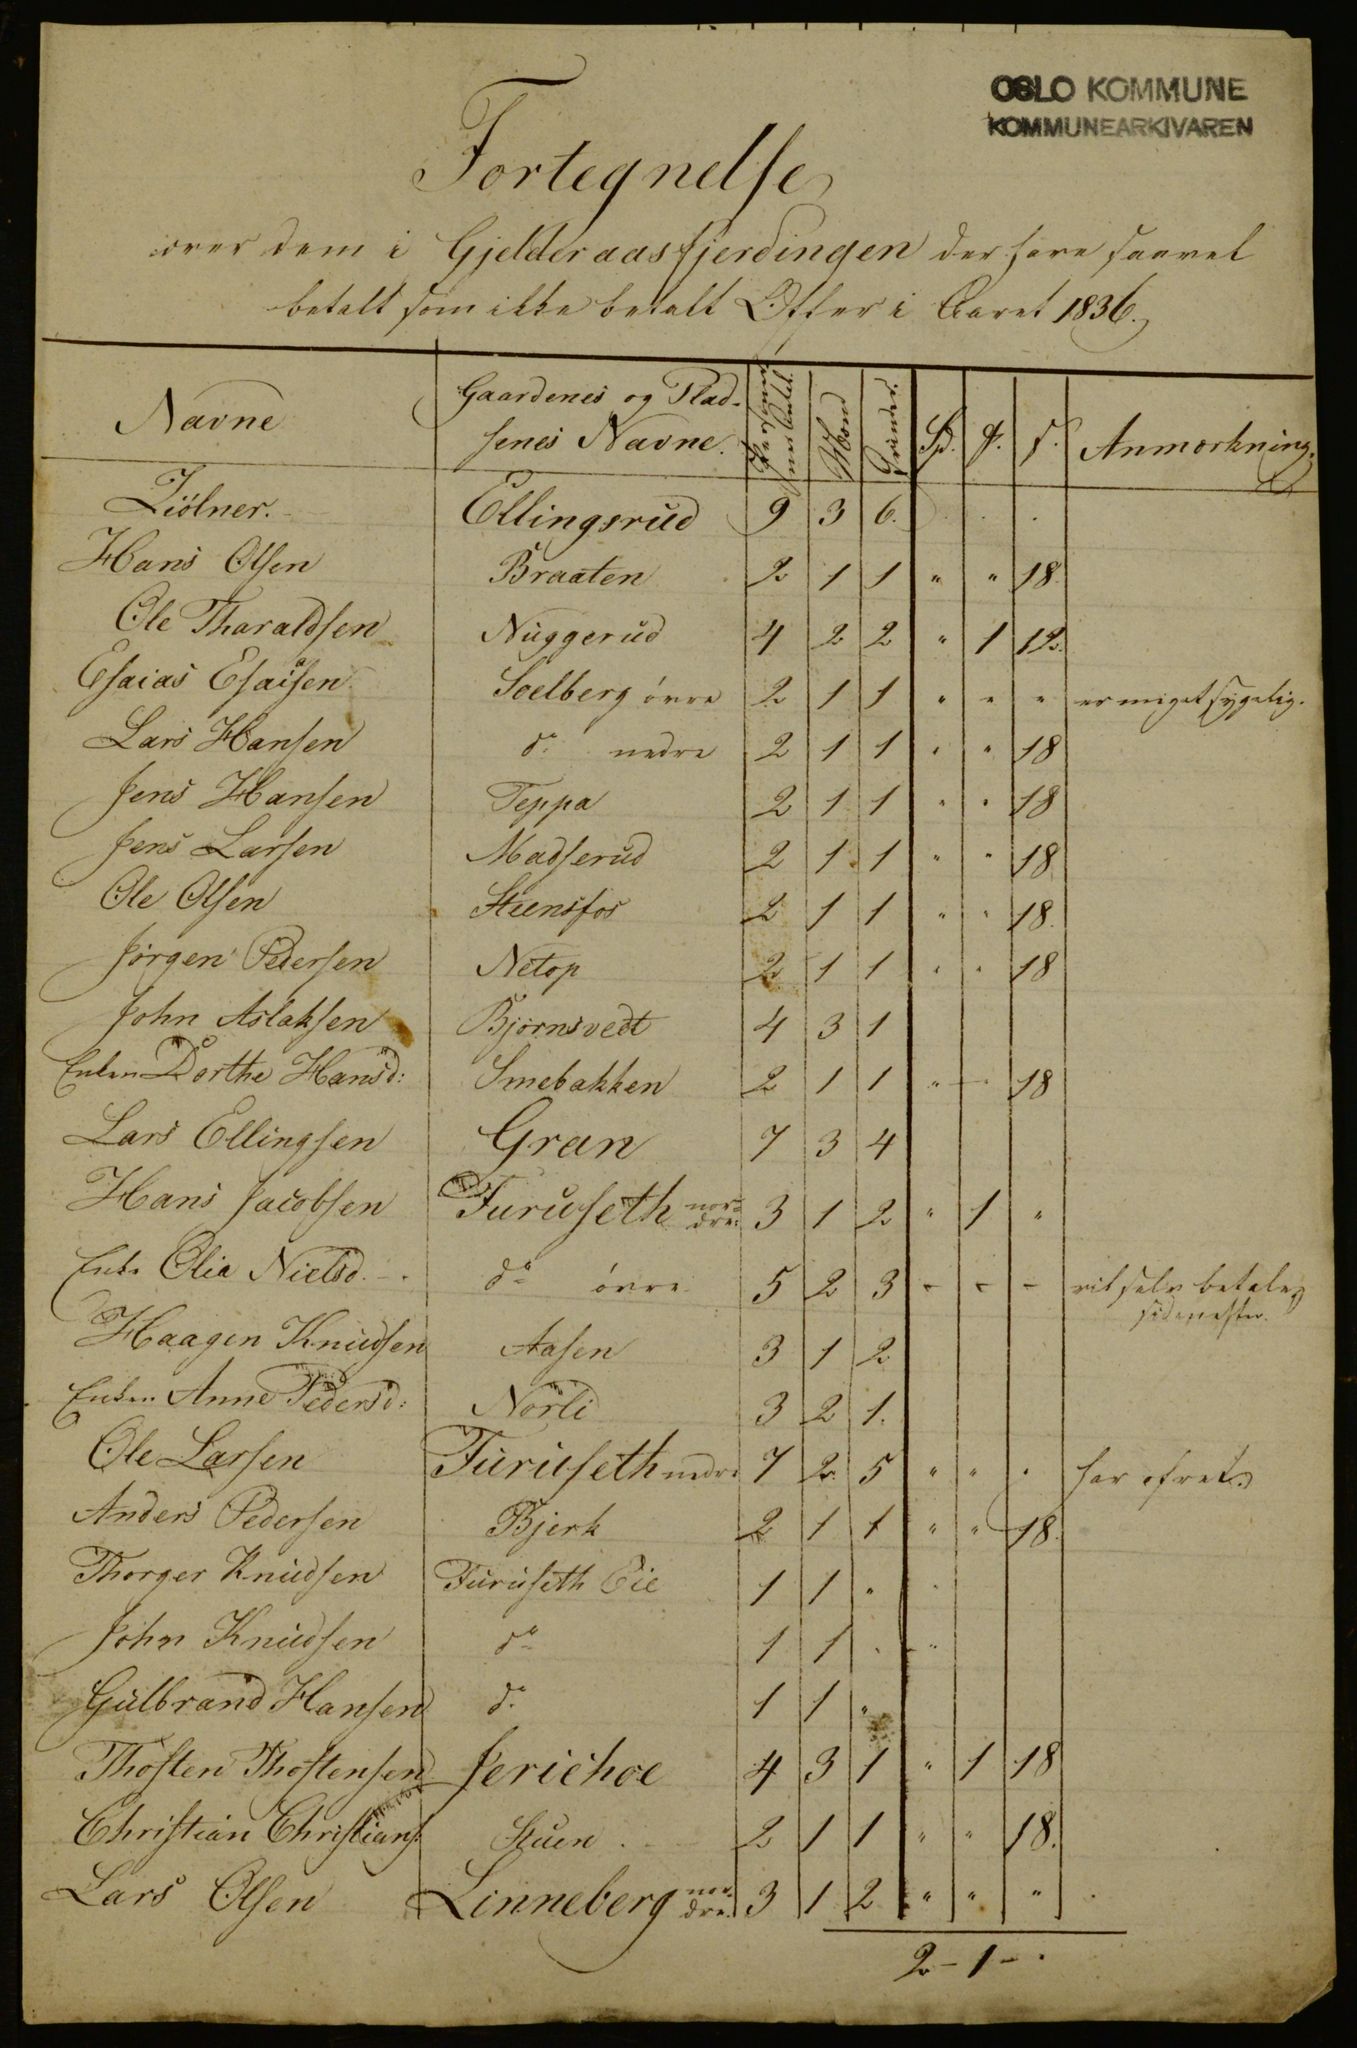 OSLO KOMMUNE
KOMMUNEARKIVAREN
Fortegnelse
over dem i Gjelderaasfjerdingen der have saavel
betalt som ikke betalt Offer i Aaret 1836.
Navne Gaardenes og Plad-
senes Navne. Mand Qvinder. Sp. s. Anmærkning.
Ziölner. Ellingsrud 9 3 6. . . .
Hans Olsen Braaten 2 1 1 " " 18.
Ole Tharaldsen Nuggerud 4 2 2 " 1 12.
Esaias Esaisen Soelberg övre 2 1 1 " " " er meget sygelig.
Lars Hansen do nedre 2 1 1 " " 18
Jens Hansen Teppa 2 1 1 " " 18
Jens Larsen Madserud 2 1 1 " " 18
Ole Olsen Steensfos 2 1 1 " " 18.
Jörgen Pedersen Netop 2 1 1 " " 18
John Aslaksen Björnsvedt 4 3 1
Enken Dorthe Hansd: Smebakken 2 1 1 " - 18
Lars Ellingsen Gran 7 3 4
Hans Jacobsen Furuseth nor-
dre: 3 1 2 " 1 "
Enke Olia Nielsd. do övre 5 2 3 - - - vil selv betale
sidenefter.
Haagen Knudsen Aasen 3 1 2
Enken Anne Pedersd: Norli 3 2 1.
Ole Larsen Furuseth nedre 7 2 5 " " . har ofret.
Anders Pedersen Bjerk 2 1 1 " " 18.
Thorger Knudsen Furuseth Eie 1 1 "
John Knudsen do 1 1 .
Gulbrand Hansen do 1 1 "
Thosten Thostensen Jerichoe 4 3 1 " 1 18
Christian Christians. Stuen. 2 1 1 " " 18.
Lars Olsen Linneberg nor-
dre. 3 1 2 " " "
2 - 1 - .